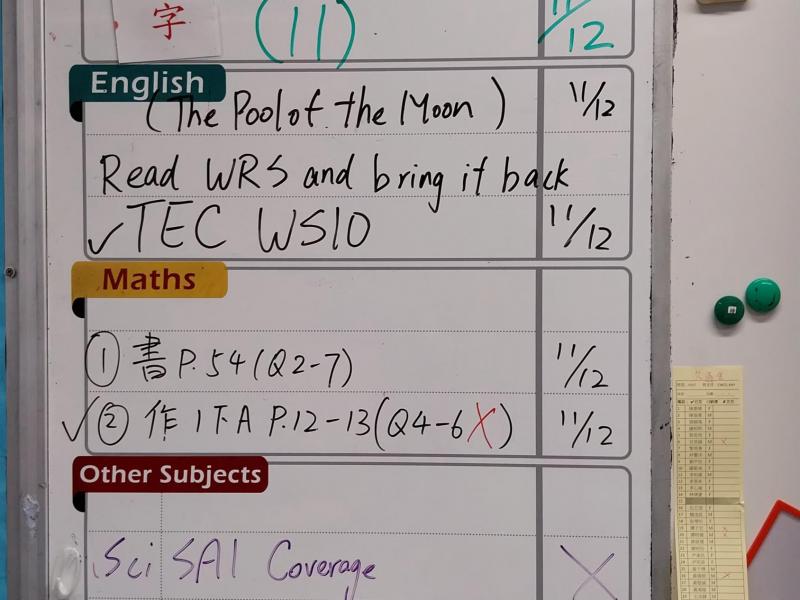 字 (11) 11/12
English
(The Pool of the Moon) 11/12
Read WRS and bring it back
✓TEC WS10 11/12
Maths
① 書 P.54(Q2-7) 11/12
✓② 作 1下A P.12-13(Q4-6X) 11/12
Other Subjects
Sci SA1 Coverage X